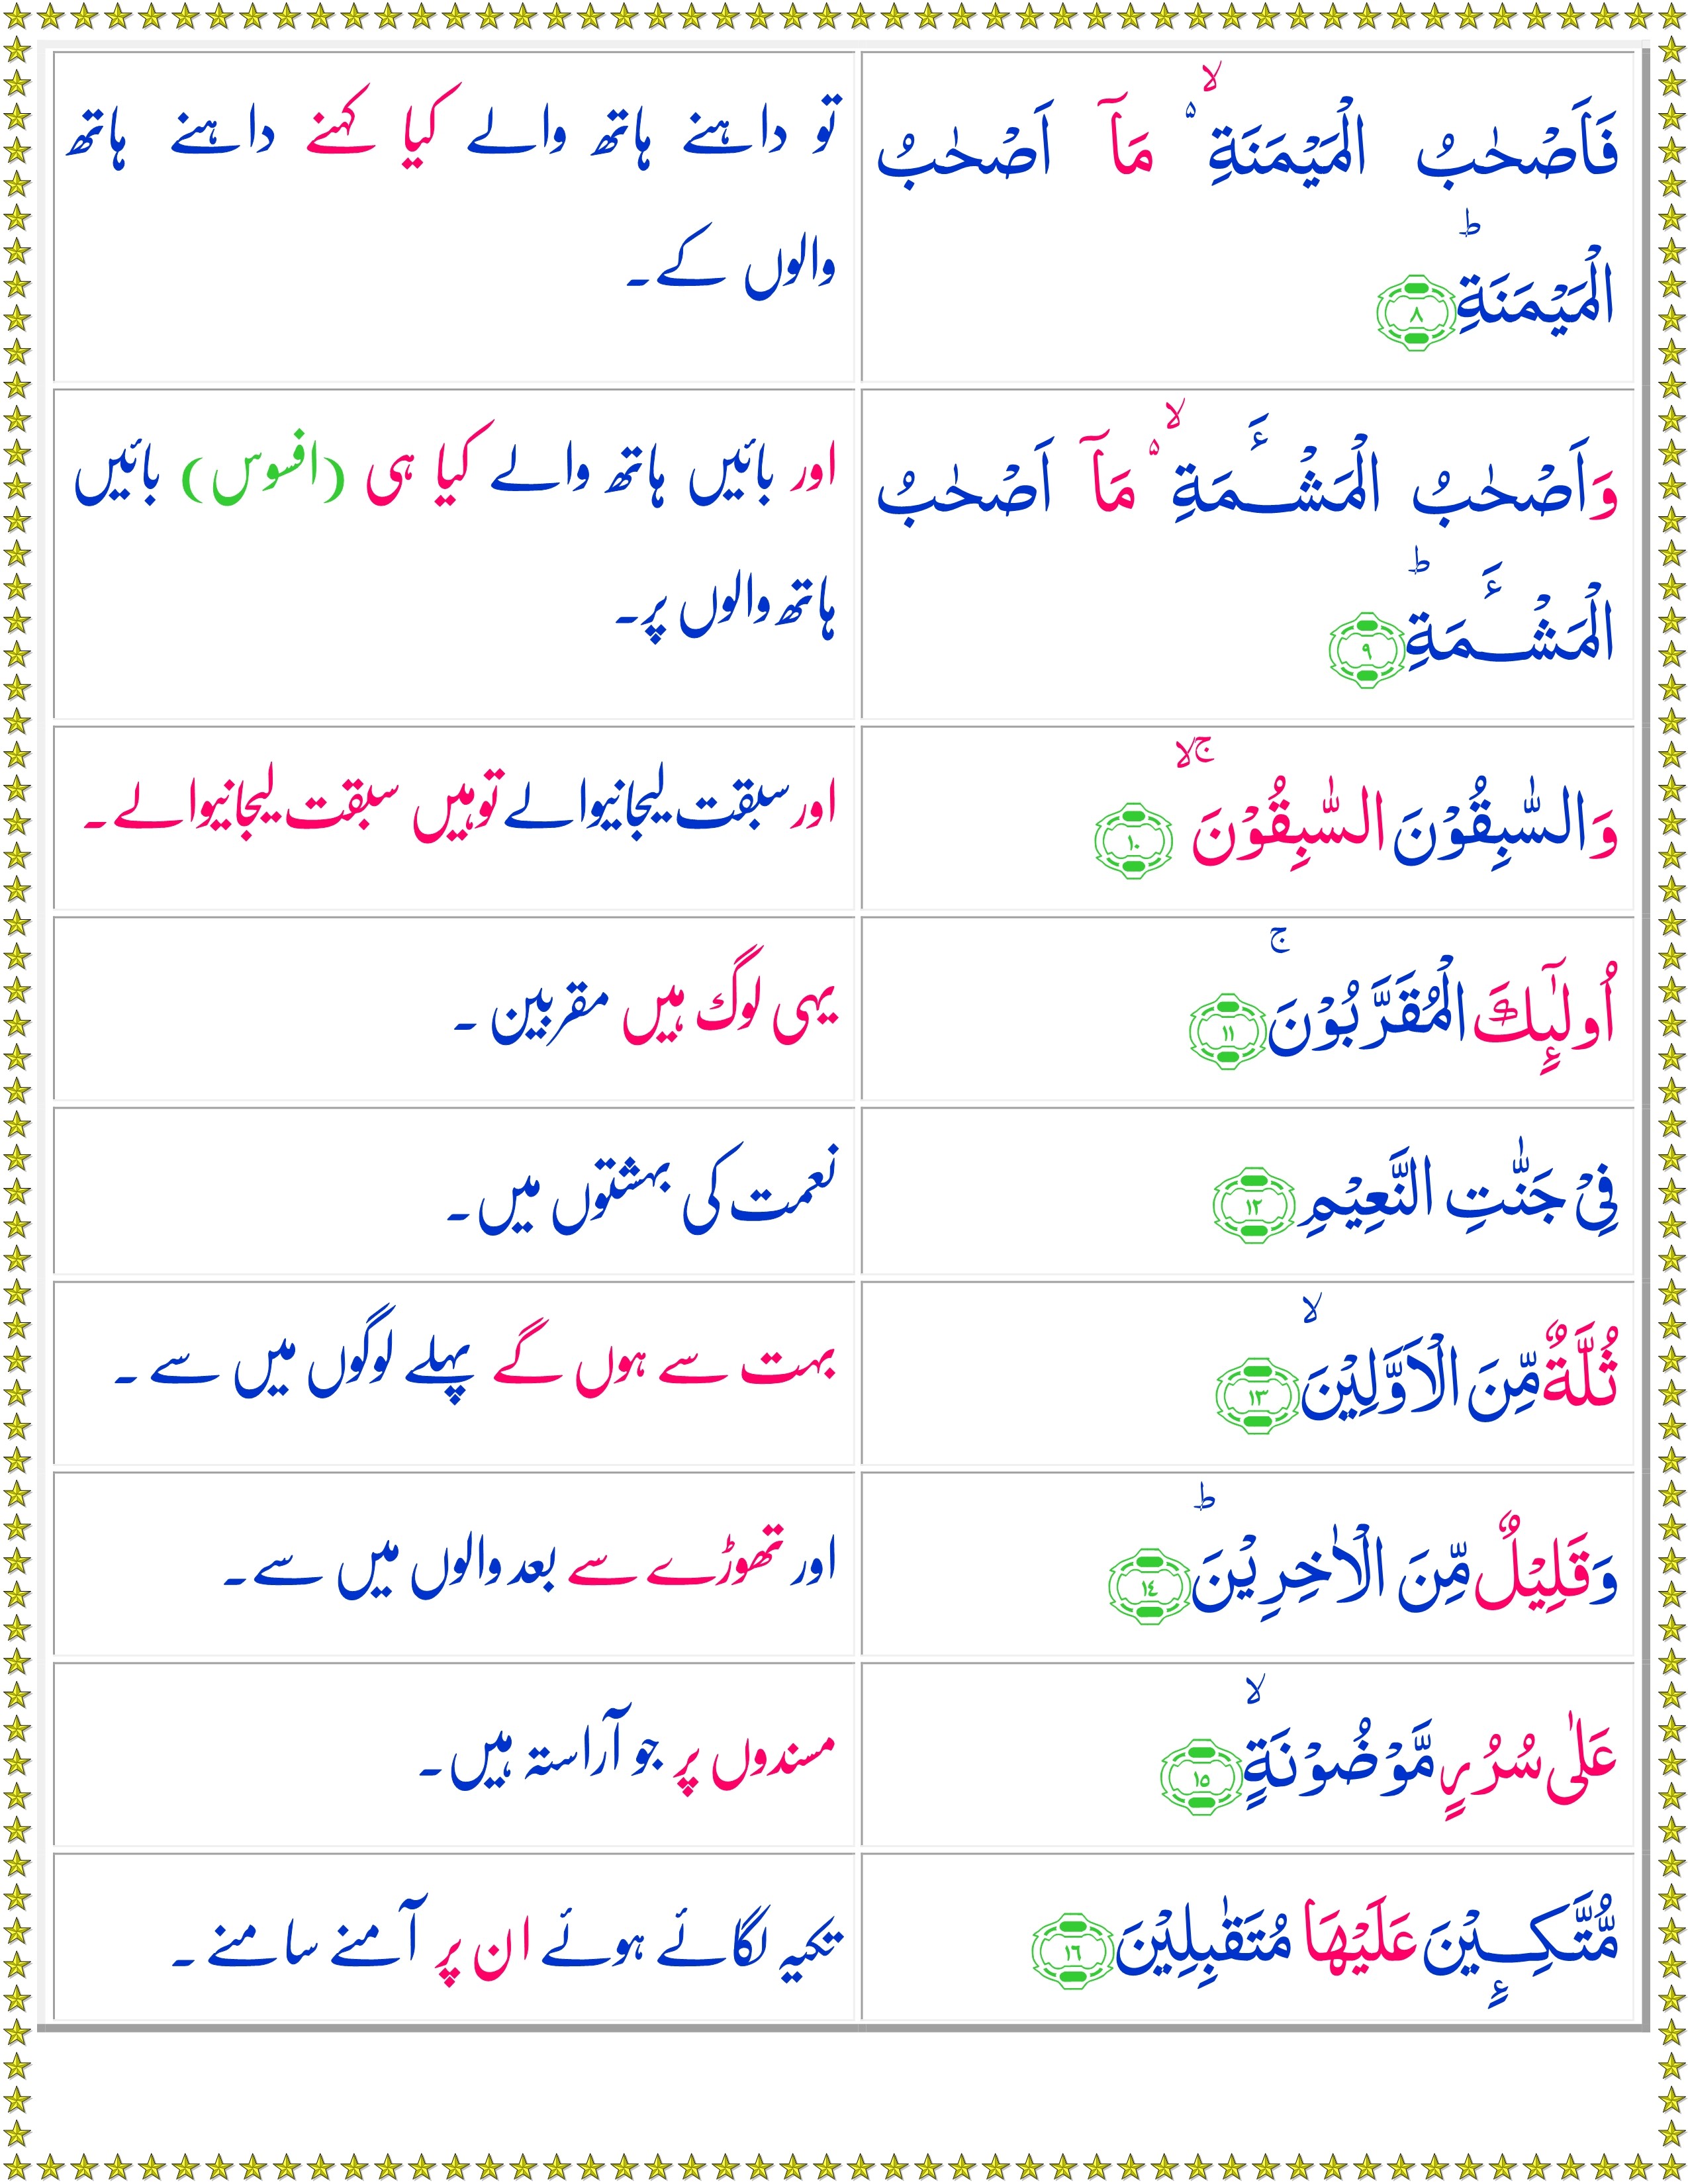 فَاَصْحٰبُ الْمَيْمَنَةِ ۙ۬ مَاۤ اَصْحٰبُ
الْمَيْمَنَةِؕ‏ ﴿۸﴾
تو داہنے ہاتھ والے کیا کہنے داہنے ہاتھ
والوں کے۔
وَاَصْحٰبُ الْمَشْــَٔمَةِ ۙ۬ مَاۤ اَصْحٰبُ
الْمَشْــَٔمَةِؕ‏ ﴿۹﴾
اور بائیں ہاتھ والے کیا ہی (افسوس) بائیں
ہاتھ والوں پر۔
وَالسّٰبِقُوْنَ السّٰبِقُوْنَ ۚۙ‏ ﴿۱۰﴾
اور سبقت لیجانیوالے تو ہیں سبقت لیجانیوالے۔
اُولٰٓٮِٕكَ الْمُقَرَّبُوْنَۚ‏ ﴿۱۱﴾
یہی لوگ ہیں مقربین ۔
فِىْ جَنّٰتِ النَّعِيْمِ‏ ﴿۱۲﴾
نعمت کی بہشتوں میں۔
ثُلَّةٌ مِّنَ الْاَوَّلِيْنَۙ‏ ﴿۱۳﴾
بہت سے ہوں گے پہلے لوگوں میں سے ۔
وَقَلِيْلٌ مِّنَ الْاٰخِرِيْنَؕ‏ ﴿۱٤﴾
اور تھوڑے سے بعد والوں میں سے۔
عَلٰى سُرُرٍ مَّوْضُوْنَةٍۙ‏ ﴿۱۵﴾
مسندوں پر جو آراستہ ہیں۔
مُّتَّكِـــِٕيْنَ عَلَيْهَا مُتَقٰبِلِيْنَ‏ ﴿۱٦﴾
تکیہ لگائے ہوئے ان پر آمنے سامنے ۔